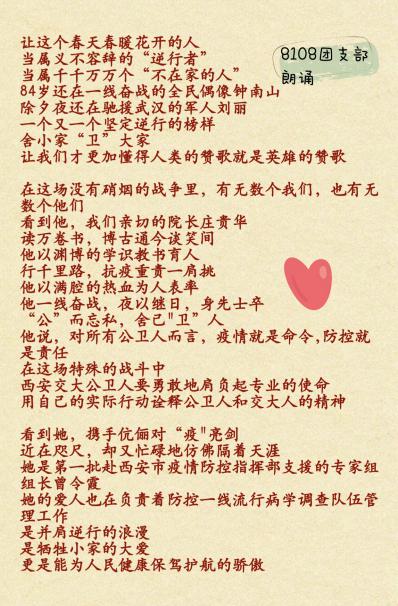 8108团支部
朗诵
让这个春天春暖花开的人
当属义不容辞的“逆行者”
当属千千万万个“不在家的人”
84岁还在一线奋战的全民偶像钟南山
除夕夜还在驰援武汉的军人刘丽
一个又一个坚定逆行的榜样
舍小家“卫”大家
让我们才更加懂得人类的赞歌就是英雄的赞歌
在这场没有硝烟的战争里，有无数个我们，也有无
数个他们
看到他，我们亲切的院长庄贵华
读万卷书，博古通今谈笑间
他以渊博的学识教书育人
行千里路，抗疫重责一肩挑
他以满腔的热血为人表率
他一线奋战，夜以继日，身先士卒
“公”而忘私，舍己"卫”人
他说，对所有公卫人而言，疫情就是命令,防控就
是责任
在这场特殊的战斗中
西安交大公卫人要勇敢地肩负起专业的使命
用自己的实际行动诠释公卫人和交大人的精神
看到她，携手伉俪对“疫"亮剑
近在咫尺，却又忙碌地仿佛隔着天涯
她是第一批赴西安市疫情防控指挥部支援的专家组
组长曾令霞
她的爱人也在负责着防控一线流行病学调查队伍管
理工作
是并肩逆行的浪漫
是牺牲小家的大爱
更是能为人民健康保驾护航的骄傲